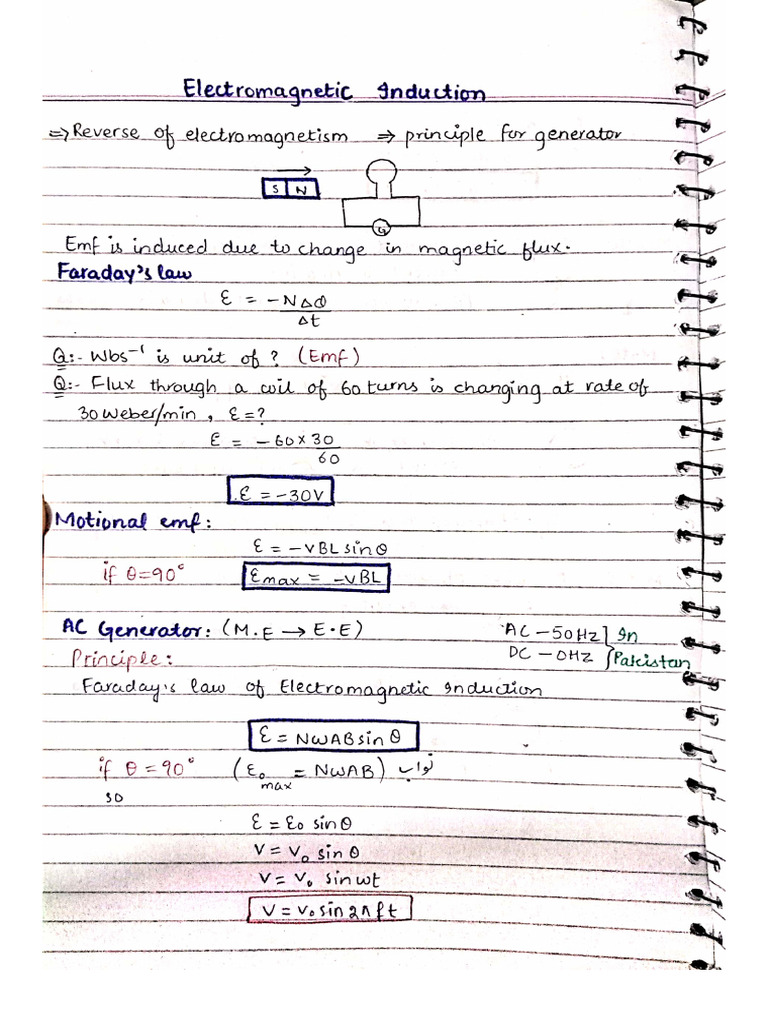 Electromagnetic Induction
⇒ Reverse of electromagnetism ⇒ principle for generator
S N
G
Emf is induced due to change in magnetic flux.
Faraday's law
Ɛ = -NΔΦ
Δt
Q:- Wbs⁻¹ is unit of ? (Emf)
Q:- Flux through a coil of 60 turns is changing at rate of
30 weber/min , Ɛ=?
Ɛ = -60×30
60
Ɛ = -30V
Motional emf:
Ɛ = -VBL sinθ
if θ=90° Ɛmax = -VBL
AC Generator: (M.E → E.E) AC - 50HZ ] In
Principle: DC - 0HZ } Pakistan
Faraday's law of Electromagnetic Induction
Ɛ = NωABsinθ
if θ = 90° (Ɛ₀ = NωAB) نواب
max
so
Ɛ = Ɛ₀ sinθ
V = V₀ sinθ
V = V₀ sinωt
V = V₀ sin2πft